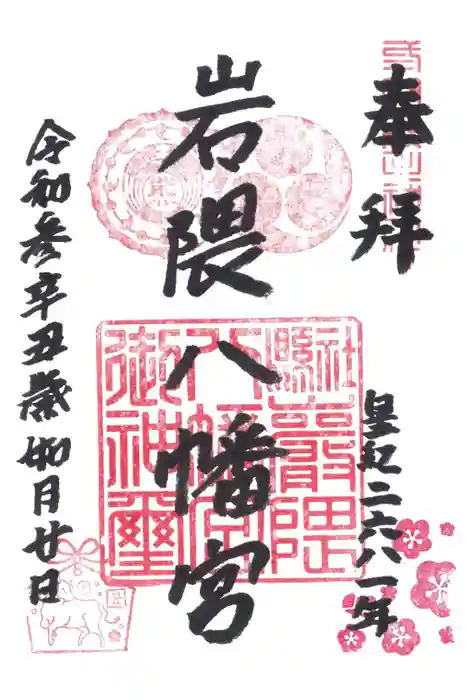 奉拝
皇紀二六八一年
岩隈八幡宮
令和参辛丑歳如月廿日